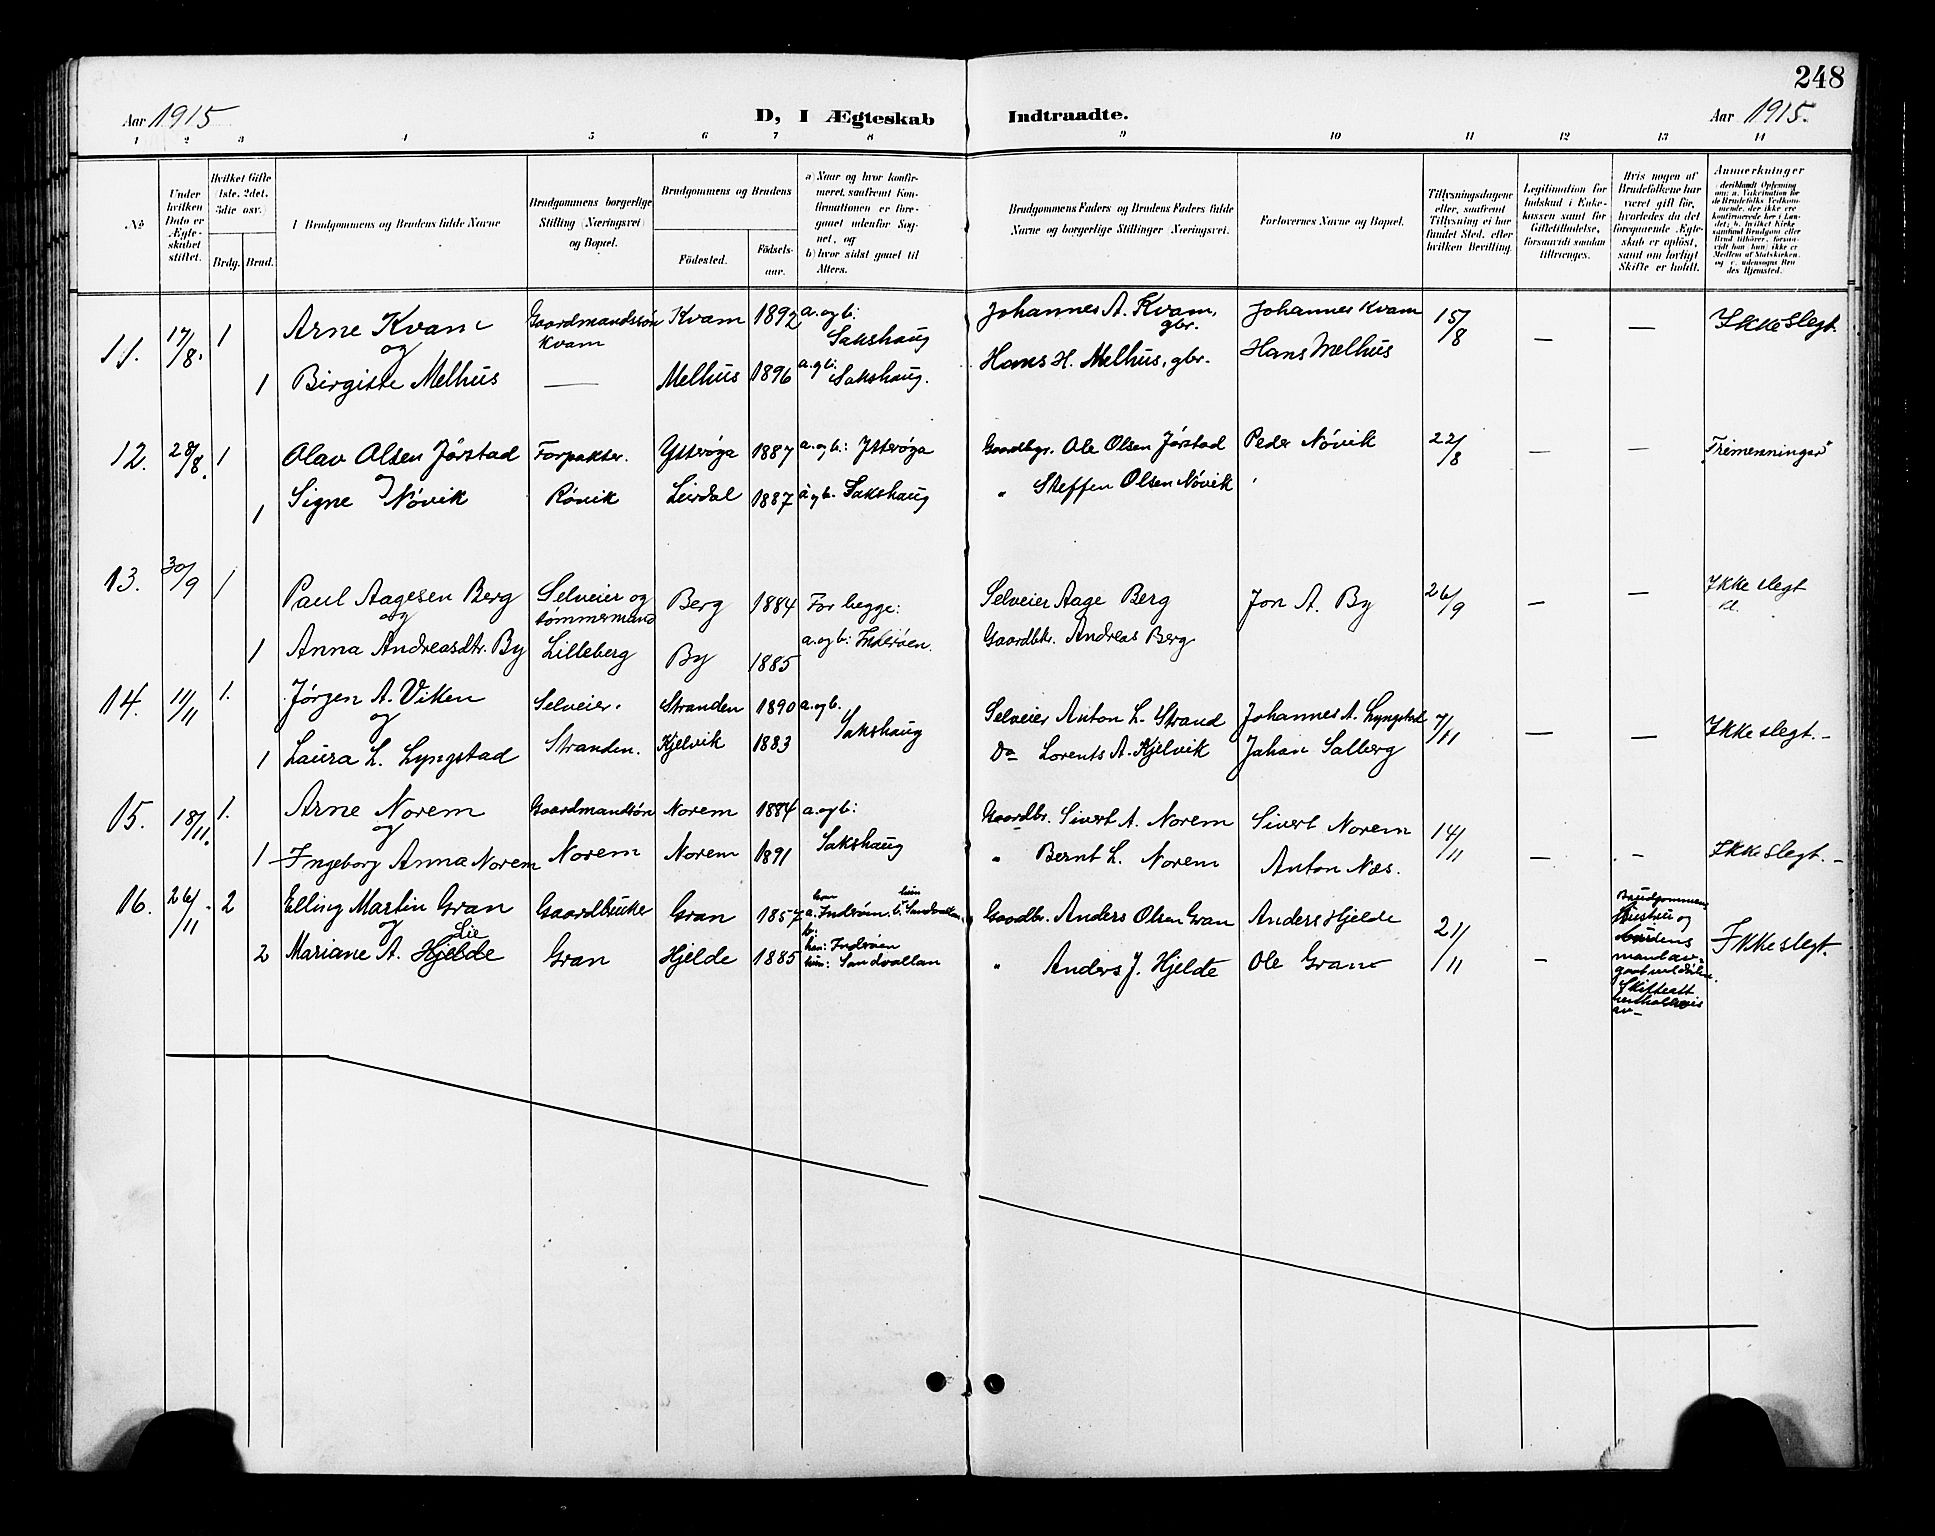 248
Aar 1915
D, I Ægteskab Indtraadte.
Aar 1915.
1 2 3 4 5 6 7 8 9 10 11 12 13 14
No.
Under hvilken Dato er Ægteskabet stiftet.
Hvilket Gifte (1ste, 2det, 3die osv.)
Brdg. Brud.
Brudgommens og Brudens fulde Navne
Brudgommens borgerlige Stilling (Næringsvei) og Bopæl.
Brudgommens og Brudens
Fødested. Fødselsaar.
a) Naar og hvor konfirmeret, saafremt Konfirmationen er foregaaet udenfor Sognet, og
b) hvor sidst gaaet til Alters.
Brudgommens Faders og Brudens Faders fulde Navne og borgerlige Stillinger (Næringsvei.
Forlovernes Navne og Bopæl.
Tillysningsdagene eller, saafremt Tillysning ei har fundet Sted, efter hvilken Bevilling.
Legitimation for Indskud i Enkekassen samt for Giftetilladelse, forsaavidt saadan tiltrænges.
Hvis nogen af Brudefolkene har været gift før, hvorledes da det foregaaende Ægteskab er opløst, samt om lovligt Skifte er holdt.
Anmerkninger
(deriblandt Oplysning om: a. Vakcination for de Brudefolks Vedkommende, der ikke ere konfirmerede her i Landet; b. hvilket Kirkesamfund Brudgom eller Brud tilhører, forsaavidt han (hun) ikke er Medlem af Statskirken, og c. udensogns Brudes Hjemsted.
11. 17/8. 1 Arne Kvam Gaardmandssøn Kvam 1892 a. og b: Johannes A. Kvam, gbr. Johannes Kvam 15/8 — — Ikke slegt.
og Kvam Sakshaug
1 Birgitte Melhus — Melhus 1896 a. og b: Sakshaug. Hans H. Melhus, gbr. Hans Melhus
12. 28/8. 1 Olav Olsen Jørstad Forpakter. Ytterøya 1887 a. og b: Ytterøya Gaardbgr. Ole Olsen Jørstad Peder Nøvik 22/8 — — "Tremenninger"
og
1 Signe Nøvik Rønik Leirdal 1887 a. og b. Sakshaug " Steffen Olsen Nøvik
13. 30/9 1 Paul Aagesen Berg Selveier og Berg 1884 For begge: Selveier Aage Berg Jon A. By 26/9 — — Ikke slegt
og tømmermand
1 Anna Andreasdtr. By Lilleberg By 1885 a. og b: Inderøen. Gaardbkr. Andreas Berg
14. 11/11 1. Jørgen A. Viken Selveier. Stranden 1890 a. og b. Selveier Anton L. Strand Johannes A. Lyngstad 7/11 — — Ikke slegt. —
og Sakshaug
1 Laura L. Lyngstad Stranden. Kjelvik 1883 Do Lorents A. Kjelvik Johan Salberg
15. 18/11. 1. Arne Norem Gaardmandsøn Norem 1884 a. og b: Gaardbr. Sivert A. Norem Sivert Norem 14/11 — — Ikke slegt. —
og Sakshaug
1 Ingeborg Anna Norem Norem Norem 1891 " Bernt L. Norem Anton Næs.
16. 26/11. 2 Elling Martin Gran Gaardbruker Gran 1857 a. han Inderøen, hun Sandvollan Gaardbr. Anders Olsen Gran Anders Hjelde 21/11 — Brudgommens hustru og brudens mand av- Ikke slegt.
og Lie b:
2 Mariane A. Hjelde Gran Hjelde 1885 han: Inderøen " Anders J. Hjelde Ole Gran
hun: Sandvollan
Skifteatt